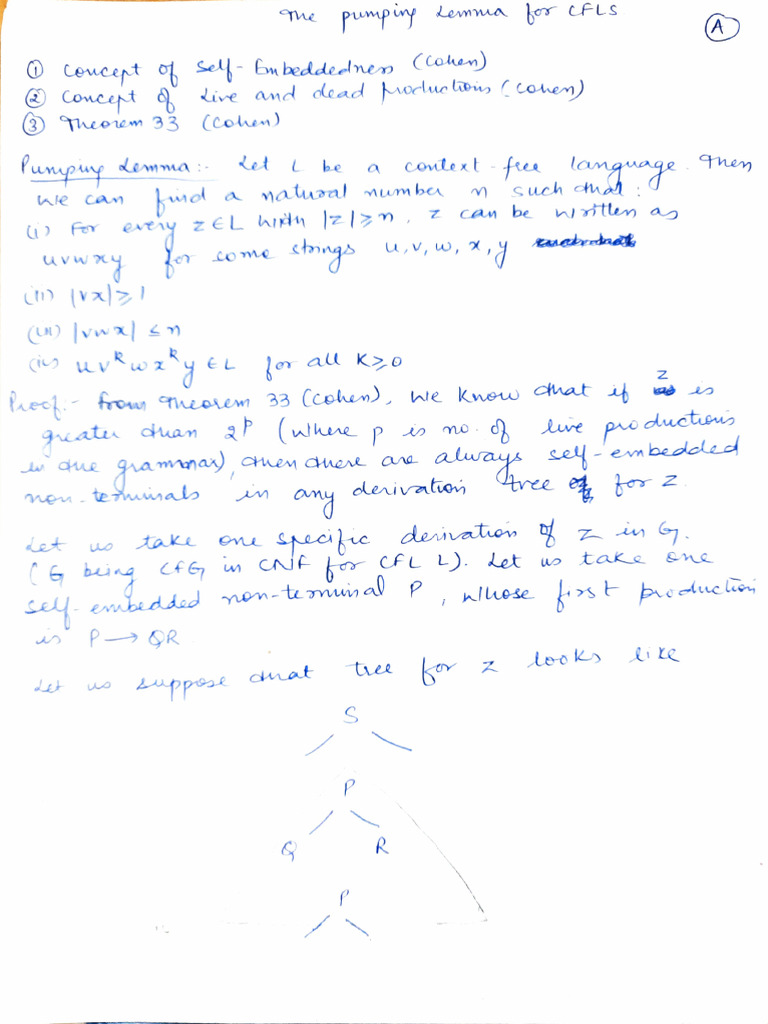 The pumping Lemma for CFLS
A
① Concept of Self-Embeddedness (Cohen)
② Concept of Live and dead productions (Cohen)
③ Theorem 33 (Cohen)
Pumping Lemma:- Let L be a context-free language. Then
we can find a natural number n such that:
(i) For every z∈L with |z|≥n, z can be written as
uvwxy for some strings u,v,w,x,y
(ii) |vx|≥1
(iii) |vwx| ≤n
(iv) uv^k wx^k y ∈ L for all K≥0
Proof:- From Theorem 33 (Cohen), we know that if z is
greater than 2^p (where p is no. of live productions
in the grammar), then there are always self-embedded
non-terminals in any derivation tree for z.
Let us take one specific derivation of z in G.
(G being CFG in CNF for CFL L). Let us take one
self-embedded non-terminal P, whose first production
is P→QR
Let us suppose that tree for z looks like
S
P
Q R
P